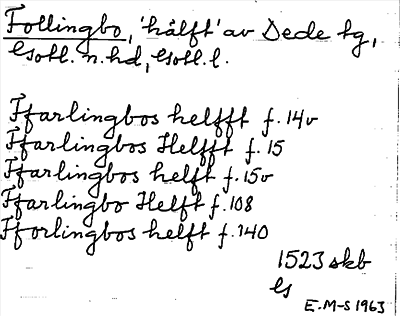 Follingbo, 'hälft' av Dede tg,
Gotl. n. hd, Gotl. l.
Ffarlingbos helfft f. 14v
Ffarlingbos Helfft f. 15
Ffarlingbos helft f. 15v
Ffarlingbo Helft f. 108
Fforlingbos helft f. 140
1523 skb
Gs
E. M-S 1963